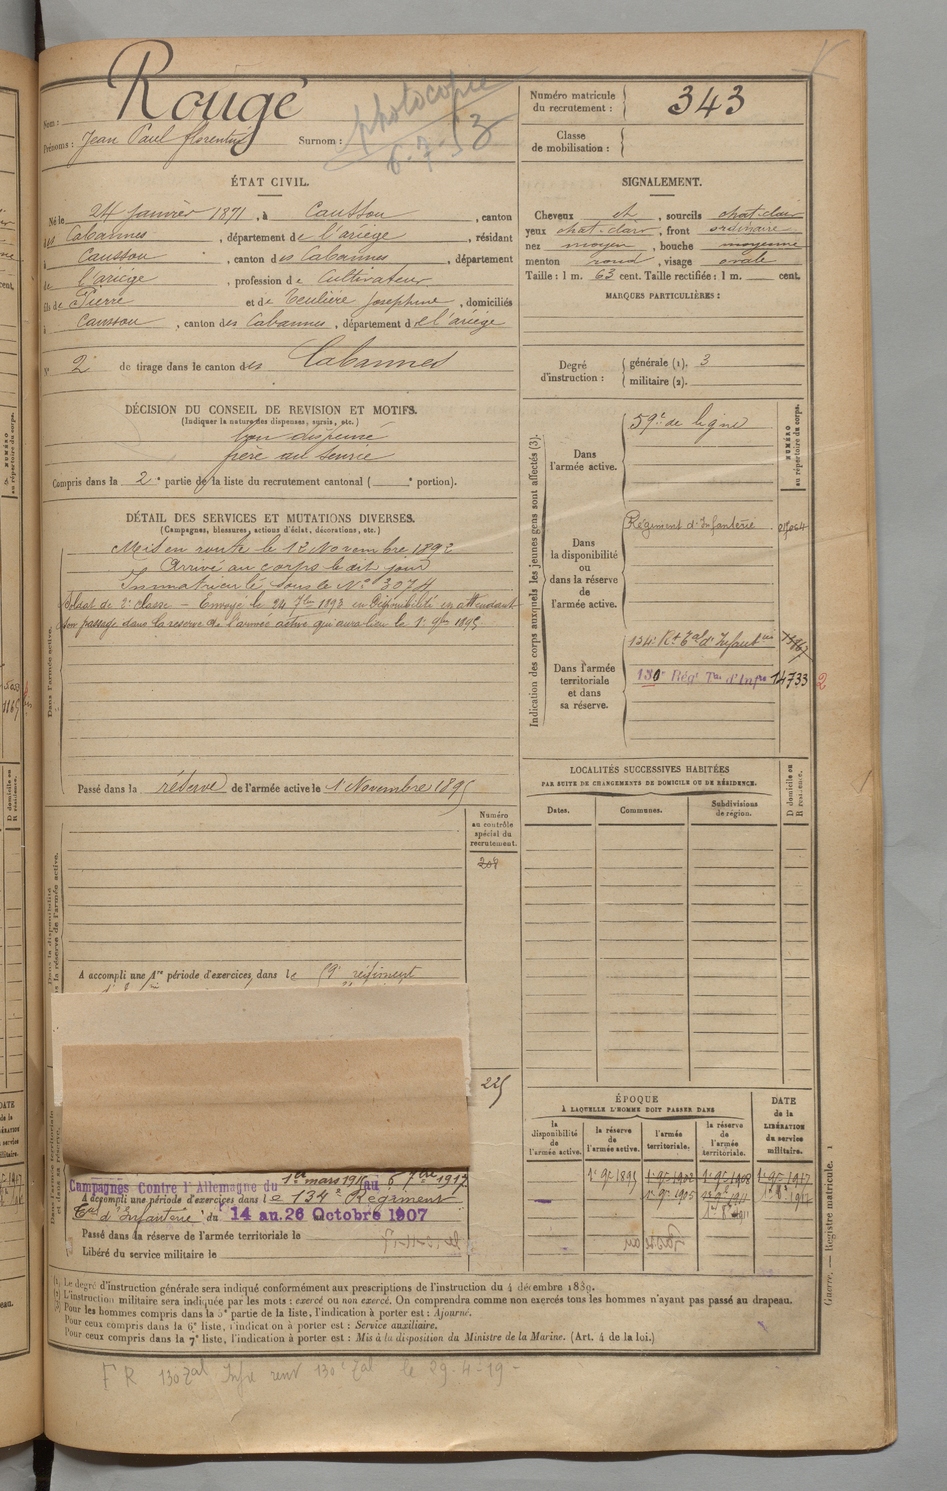 Nom : Rougé
Prénoms : Jean Paul florentin Surnom :
photocopie
6-7-53
ÉTAT CIVIL.
Né le 24 janvier 1871, à Caussou, canton
des Cabannes, département de l'ariège, résidant
à Caussou, canton des Cabannes, département
de l'ariège, profession de Cultivateur
fils de Pierre et de Teulière Joséphine, domiciliés
à Caussou, canton des Cabannes, département de l'ariège
N° 2 de tirage dans le canton des Cabannes
DÉCISION DU CONSEIL DE REVISION ET MOTIFS.
(Indiquer la nature des dispenses, sursis, etc.)
bon dispensé
frère au service
Compris dans la 2e partie de la liste du recrutement cantonal ( e portion).
DÉTAIL DES SERVICES ET MUTATIONS DIVERSES.
(Campagnes, blessures, actions d'éclat, décorations, etc.)
Dans l'armée active.
Mis en route le 12 Novembre 1892
Arrivé au corps le dit jour
Immatriculé sous le No 3074
Soldat de 2e classe — Envoyé le 24 7bre 1893 en Disponibilité en attendant
son passage dans la réserve de l'armée active qui aura lieu le 1er 9bre 1895
Passé dans la réserve de l'armée active le 1 Novembre 1895
Numéro
au contrôle
spécial du
recrutement.
208
A accompli une 1re période d'exercices dans le 59e régiment
225
Campagnes Contre l'Allemagne du 1er mars 1916 au 6 7bre 1917
A accompli une période d'exercices dans le 134e Régiment
Tal d'Infanterie du 14 au 26 Octobre 1907
Passé dans la réserve de l'armée territoriale le
Libéré du service militaire le
Numéro matricule
du recrutement : 343
Classe
de mobilisation :
SIGNALEMENT.
Cheveux et, sourcils chat-clair
yeux chat-clair, front ordinaire
nez moyen, bouche moyenne
menton rond, visage ovale
Taille : 1 m. 63 cent. Taille rectifiée : 1 m. cent.
MARQUES PARTICULIÈRES :
Degré
d'instruction :
générale (1). 3
militaire (2).
Indication des corps auxquels les jeunes gens sont affectés (3).
NUMÉRO
au répertoire du corps.
Dans
l'armée active.
59e de ligne
Dans
la disponibilité
ou
dans la réserve
de
l'armée active.
Régiment d'Infanterie
Dans l'armée
territoriale
et dans
sa réserve.
134e Rt Tal d'Infanterie
130e Régt Tal d'Infrie 14733 2
LOCALITÉS SUCCESSIVES HABITÉES
PAR SUITE DE CHANGEMENTS DE DOMICILE OU DE RÉSIDENCE.
D domicile ou
R résidence.
Dates.
Communes.
Subdivisions
de région.
ÉPOQUE
À LAQUELLE L'HOMME DOIT PASSER DANS
DATE
de la
LIBÉRATION
du service
militaire.
la
disponibilité
de
l'armée active.
la réserve
de
l'armée active.
l'armée
territoriale.
la réserve
de
l'armée
territoriale.
1er 9e 1895 1er 9e 1902 1er 9e 1908 1er 9e 1917
1er 9e 1905 1911 1er 8e 1917
(1) Le degré d'instruction générale sera indiqué conformément aux prescriptions de l'instruction du 4 décembre 1889.
(2) L'instruction militaire sera indiquée par les mots : exercé ou non exercé. On comprendra comme non exercés tous les hommes n'ayant pas passé au drapeau.
(3) Pour les hommes compris dans la 5e partie de la liste, l'indication à porter est : Ajourné.
Pour ceux compris dans la 6e liste, l'indication à porter est : Service auxiliaire.
Pour ceux compris dans la 7e liste, l'indication à porter est : Mis à la disposition du Ministre de la Marine. (Art. 4 de la loi.)
Guerre. — Registre matricule. 1
F R 130 Tal Infie 130e Tal le 29-4-19